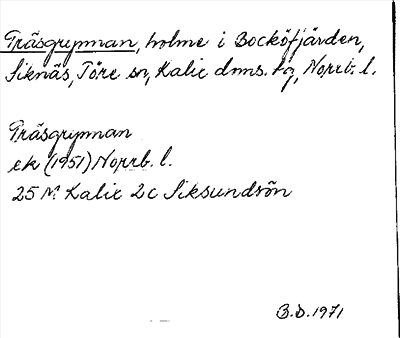 Träsgrynnan, holme i Bocköfjärden,
Siknäs, Töre sn, Kalix dms. tg, Norrb. l.
Träsgrynnan
ek (1951) Norrb. l.
25 M Kalix 2c Siksundsön
B.D. 1971